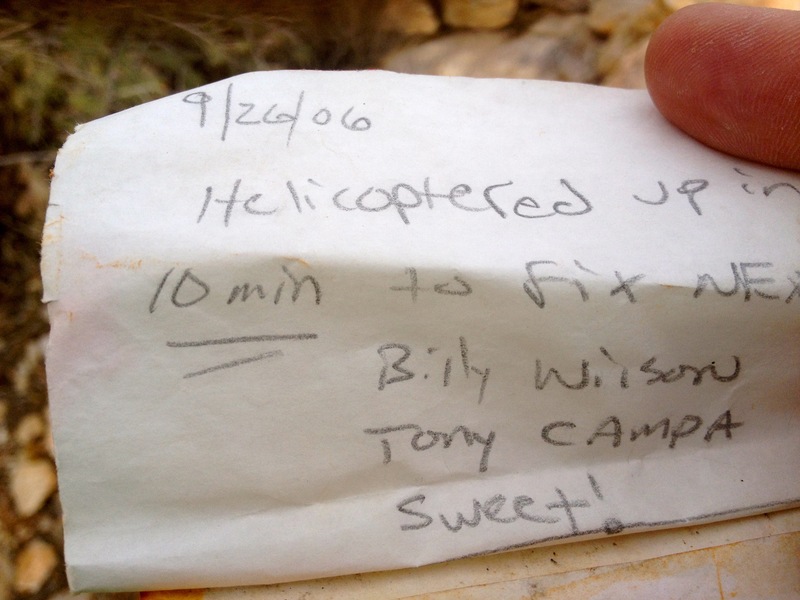 9/26/06
Helicoptered up in
10 min to fix NEX
Billy Wilson
Tony CAMPA
Sweet!